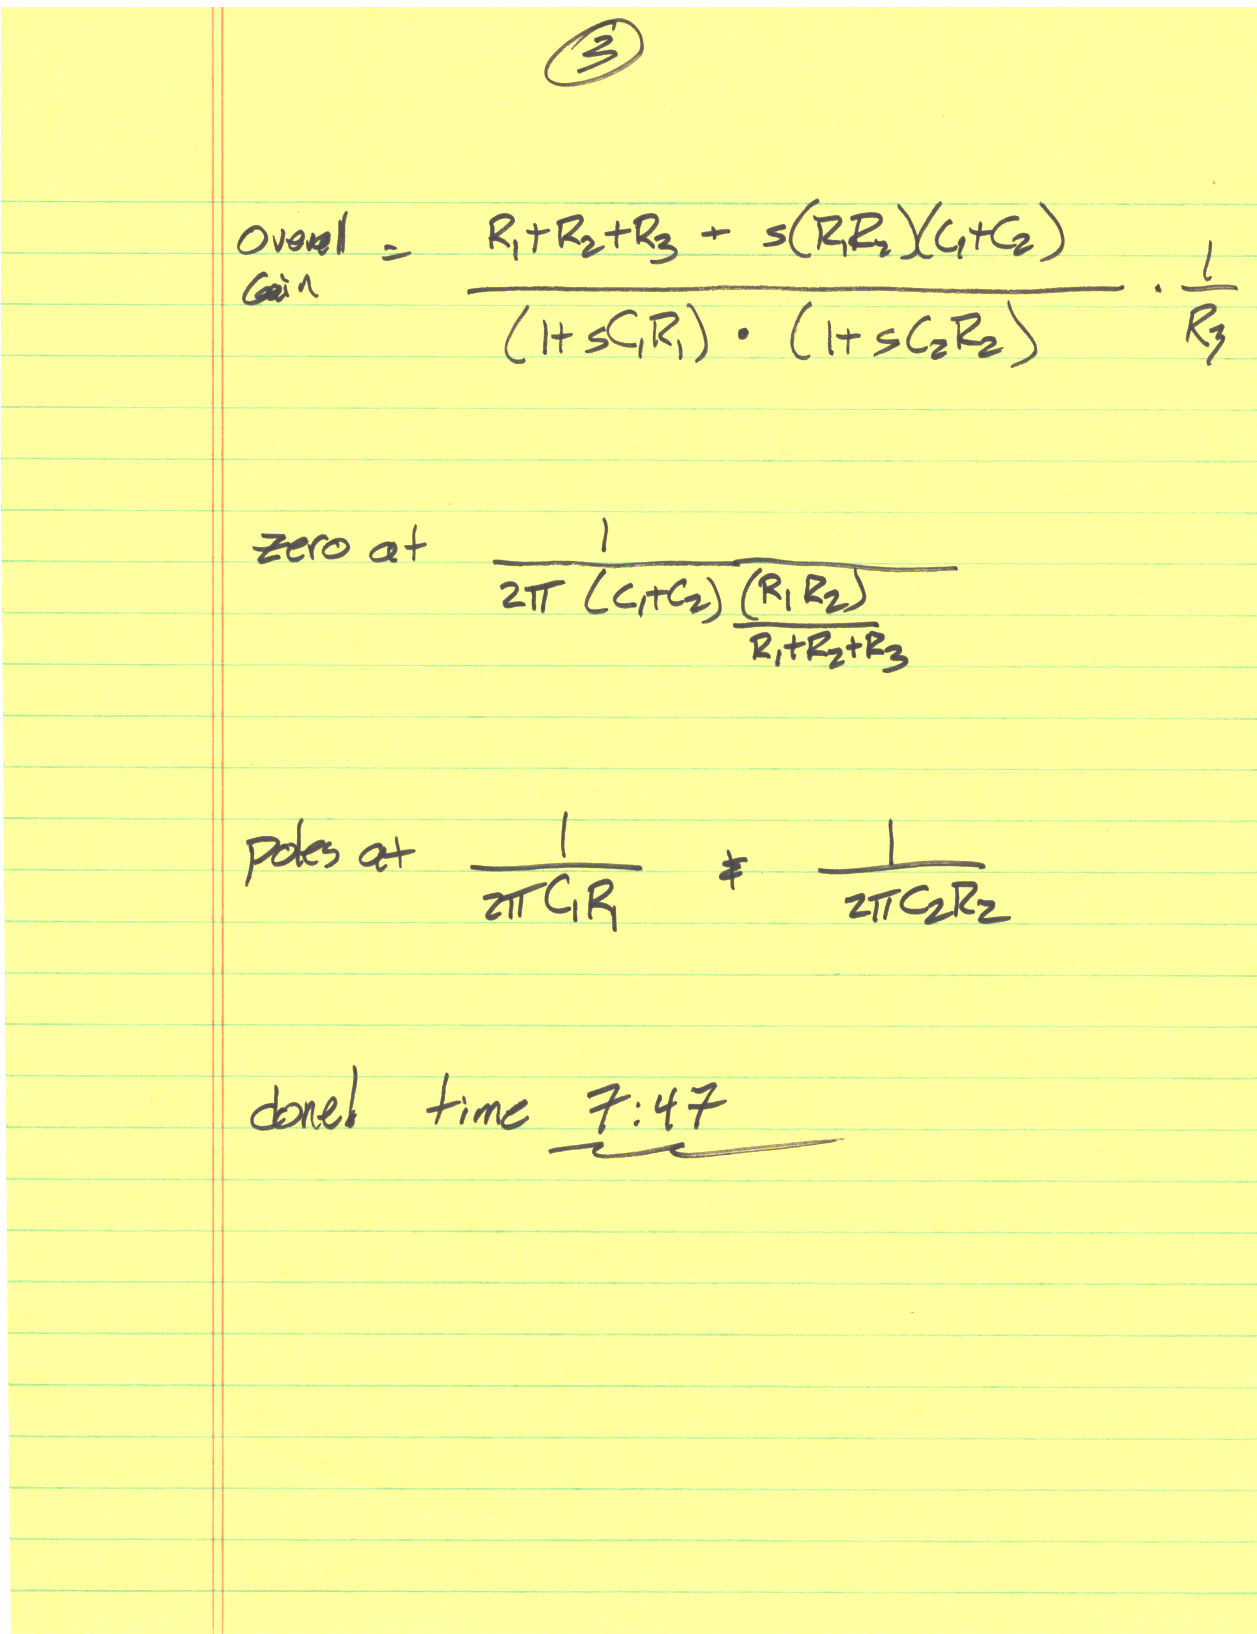 3
Overal Gain = R₁+R₂+R₃ + s(R₁R₂)(C₁+C₂) / (1+sC₁R₁) · (1+sC₂R₂) · 1/R₃
zero at 1 / 2π (C₁+C₂) (R₁R₂) / R₁+R₂+R₃
poles at 1 / 2πC₁R₁ & 1 / 2πC₂R₂
done! time 7:47